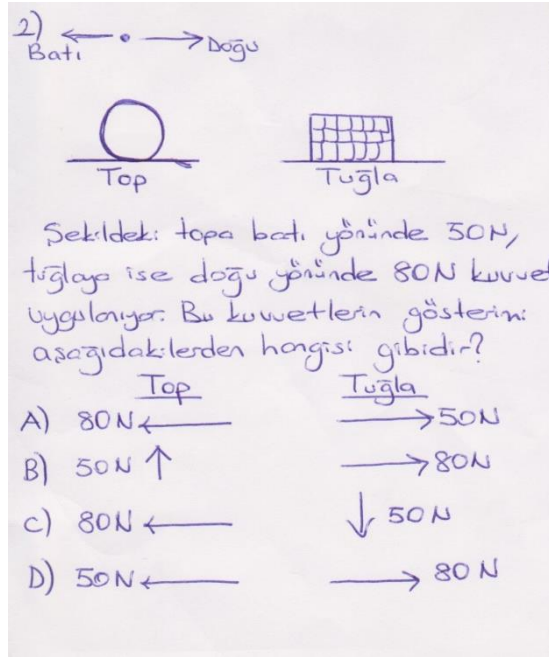 2)
Batı ← • → Doğu
Top Tuğla
Şekildeki topa batı yönünde 50N,
tuğlaya ise doğu yönünde 80N kuvvet
uygulanıyor. Bu kuvvetlerin gösterimi
aşağıdakilerden hangisi gibidir?
Top Tuğla
A) 80N ← → 50N
B) 50N ↑ → 80N
C) 80N ← ↓ 50N
D) 50N ← → 80N